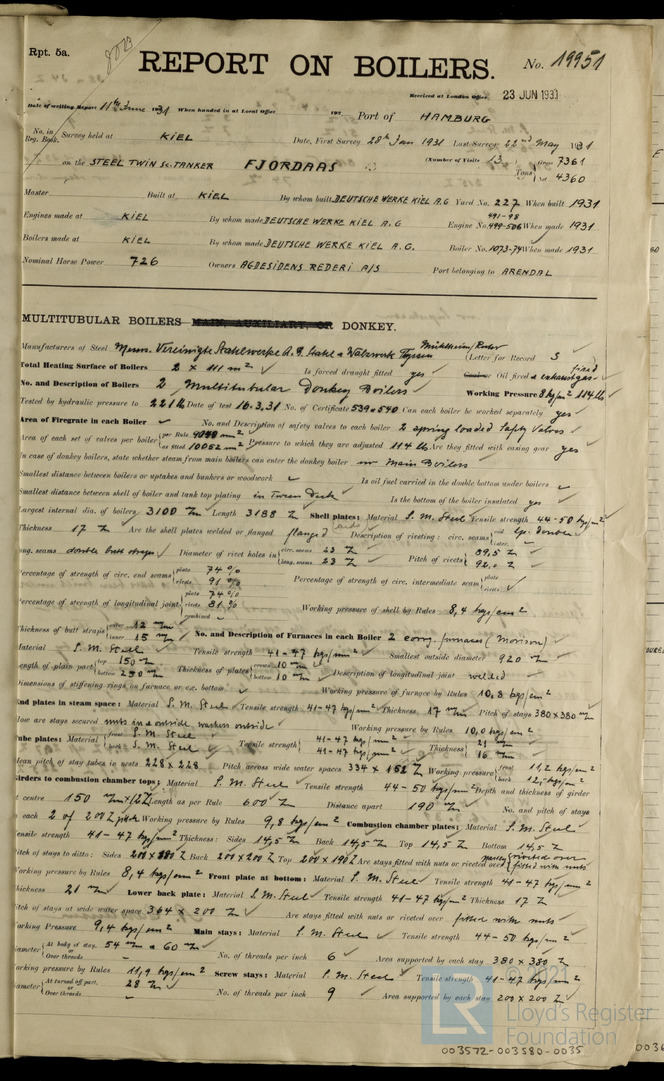 Rpt. 5a.
8073
REPORT ON BOILERS.
No. 19951
Received at London Office 23 JUN 1931
Date of writing Report 11th June 1931 When handed in at Local Office 193 Port of HAMBURG
No. in Reg. Book. Survey held at KIEL Date, First Survey 28th Jan 1931 Last Survey 22nd May 1931
on the STEEL TWIN Sc. TANKER FJORDAAS (Number of Visits 13) Tons Gross 7361 Net 4360
Master Built at KIEL By whom built DEUTSCHE WERKE KIEL A.G Yard No. 227 When built 1931
Engines made at KIEL By whom made DEUTSCHE WERKE KIEL A.G Engine No. 491-98 499-506 When made 1931
Boilers made at KIEL By whom made DEUTSCHE WERKE KIEL A.G. Boiler No. 1073-74 When made 1931
Nominal Horse Power 726 Owners AGDESIDENS REDERI A/S Port belonging to ARENDAL
MULTITUBULAR BOILERS MAIN, AUXILIARY, OR DONKEY.
Manufacturers of Steel Messrs. Vereinigte Stahlwerke A.G. Stahl & Walzwerk Thyssen Mülheim/Ruhr (Letter for Record S
Total Heating Surface of Boilers 2 x 111 m² Is forced draught fitted yes Oil fired & exhaust gas fired
No. and Description of Boilers 2 Multitubular Donkey Boilers Working Pressure 8 kg/cm² 114 lb
Tested by hydraulic pressure to 221 lb Date of test 16.3.31 No. of Certificate 539 & 540 Can each boiler be worked separately yes
Area of Firegrate in each Boiler No. and Description of safety valves to each boiler 2 spring loaded Safety Valves
Area of each set of valves per boiler per Rule mm² as fitted 10052 mm² Pressure to which they are adjusted 114 lb Are they fitted with easing gear yes
In case of donkey boilers, state whether steam from main boilers can enter the donkey boiler no Main Boilers
Smallest distance between boilers or uptakes and bunkers or woodwork Is oil fuel carried in the double bottom under boilers
Smallest distance between shell of boiler and tank top plating in Tween Deck Is the bottom of the boiler insulated yes
Largest internal dia. of boilers 3100 Length 3188 Shell plates: Material S. M. Steel Tensile strength 44-50 kgs/mm²
Thickness 17 Are the shell plates welded or flanged flanged Description of riveting: circ. seams end lap double inter.
long. seams double butt straps Diameter of rivet holes in circ. seams 23 long. seams 23 Pitch of rivets 89,5 92,0
Percentage of strength of circ. end seams plate 74% rivets 91% Percentage of strength of circ. intermediate seam plate rivets
Percentage of strength of longitudinal joint plate 74% rivets 81% combined Working pressure of shell by Rules 8,4 kgs/cm²
Thickness of butt straps outer 12 inner 15 No. and Description of Furnaces in each Boiler 2 corrg. furnaces (Morison)
Material S. M. Steel Tensile strength 41-47 kgs/mm² Smallest outside diameter 920
Length of plain part top 150 bottom 290 Thickness of plates crown 10 bottom 10 Description of longitudinal joint welded
Dimensions of stiffening rings on furnace or c.c. bottom Working pressure of furnace by Rules 10,8 kgs/cm²
End plates in steam space: Material S. M. Steel Tensile strength 41-47 kgs/mm² Thickness 17 Pitch of stays 380 x 380
How are stays secured nuts in & outside washers outside Working pressure by Rules 10,0 kgs/cm²
Tube plates: Material front S. M. Steel back S. M. Steel Tensile strength 41-47 kgs/mm² 41-47 kgs/mm² Thickness 21 16
Mean pitch of stay tubes in nests 228 x 228 Pitch across wide water spaces 334 x 152 Working pressure front 11,2 kgs/cm² back kgs/cm²
Girders to combustion chamber tops: Material S. M. Steel Tensile strength 44-50 kgs/mm² Depth and thickness of girder
at centre 150 Length as per Rule 600 Distance apart 190 No. and pitch of stays
in each 2 of 200 Working pressure by Rules 9,8 kgs/cm² Combustion chamber plates: Material S. M. Steel
Tensile strength 41-47 kgs/mm² Thickness: Sides 14,5 Back 14,5 Top 14,5 Bottom 14,5
Pitch of stays to ditto: Sides Back 200 x 200 Top 200 x 190 Are stays fitted with nuts or riveted over partly riveted over fitted with nuts
Working pressure by Rules 8,4 kgs/cm² Front plate at bottom: Material S. M. Steel Tensile strength 41-47 kgs/mm²
Thickness 21 Lower back plate: Material S. M. Steel Tensile strength 41-47 kgs/mm² Thickness 17
Pitch of stays at wide water space 364 x 200 Are stays fitted with nuts or riveted over fitted with nuts
Working Pressure 9,4 kgs/cm² Main stays: Material S. M. Steel Tensile strength 44-50 kgs/mm²
Diameter At body of stay, or Over threads 54 & 60 No. of threads per inch 6 Area supported by each stay 380 x 380
Working pressure by Rules 11,9 kgs/cm² Screw stays: Material S. M. Steel Tensile strength 41-47 kgs/mm²
Diameter At turned off part, or Over threads 28 No. of threads per inch 9 Area supported by each stay 200 x 200
© 2021
LR
Lloyd's Register
Foundation
003572-003580-0035